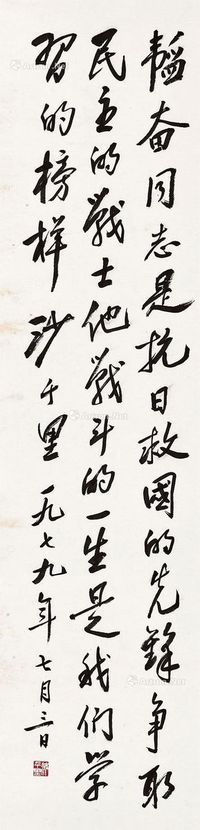 韬奋同志是抗日救國的先鋒争取
民主的戰士他戰斗的一生是我们学
習的榜样 沙千里 一九七九年七月三日